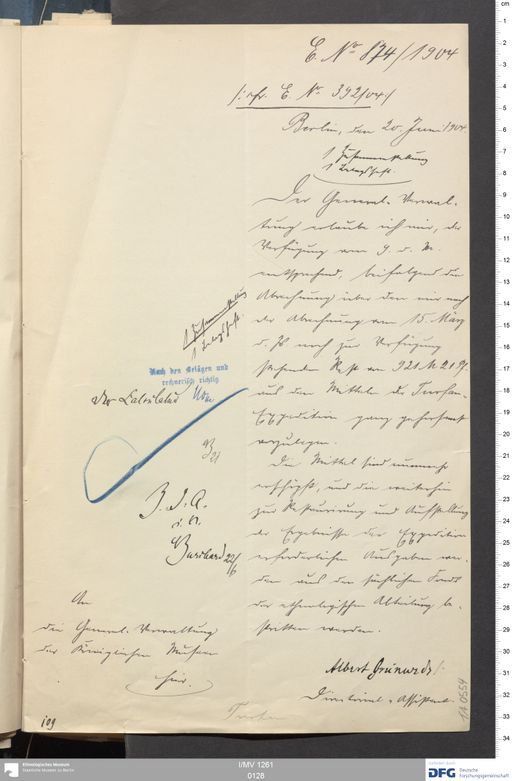 E. No 874/1904
/: cfr. E. No 392/04 :/
Berlin, den 20. Juni 1904.
1 Zusammenstellung
1 Belagsheft.
Der General-Verwal-
tung erlaube ich mir, der
Verfügung vom 9. d. M.
entsprechend, beifolgend die
Abrechnung über den mir nach
der Abrechnung vom 15. März
d. Js noch zur Verfügung
stehenden Rest von 921 M. 21 Pf.
aus den Mitteln der Turfan-
Expedition ganz gehorsamst
vorzulegen.
Die Mittel sind nunmehr
erschöpft, und die weiterhin
zur Restaurirung und Aufstellung
der Ergebnisse der Expedition
erforderlichen Ausgaben wer-
den aus den sächlichen Fonds
der ethnologischen Abteilung be-
stritten werden.
Albert Grünwedel
Direktorial-Assistent.
1 Zusammenstellung
1 Belagsheft.
Nach den Belägen und
rechnerisch richtig
Der Calculator
Z. d. A.
Burchard 22/6
An
die General-Verwaltung
der Königlichen Museen
hier.
Turfan
109
1A 0554
Ethnologisches Museum
Staatliche Museen zu Berlin
I/MV 1261
0128
DFG Deutsche
Forschungsgemeinschaft